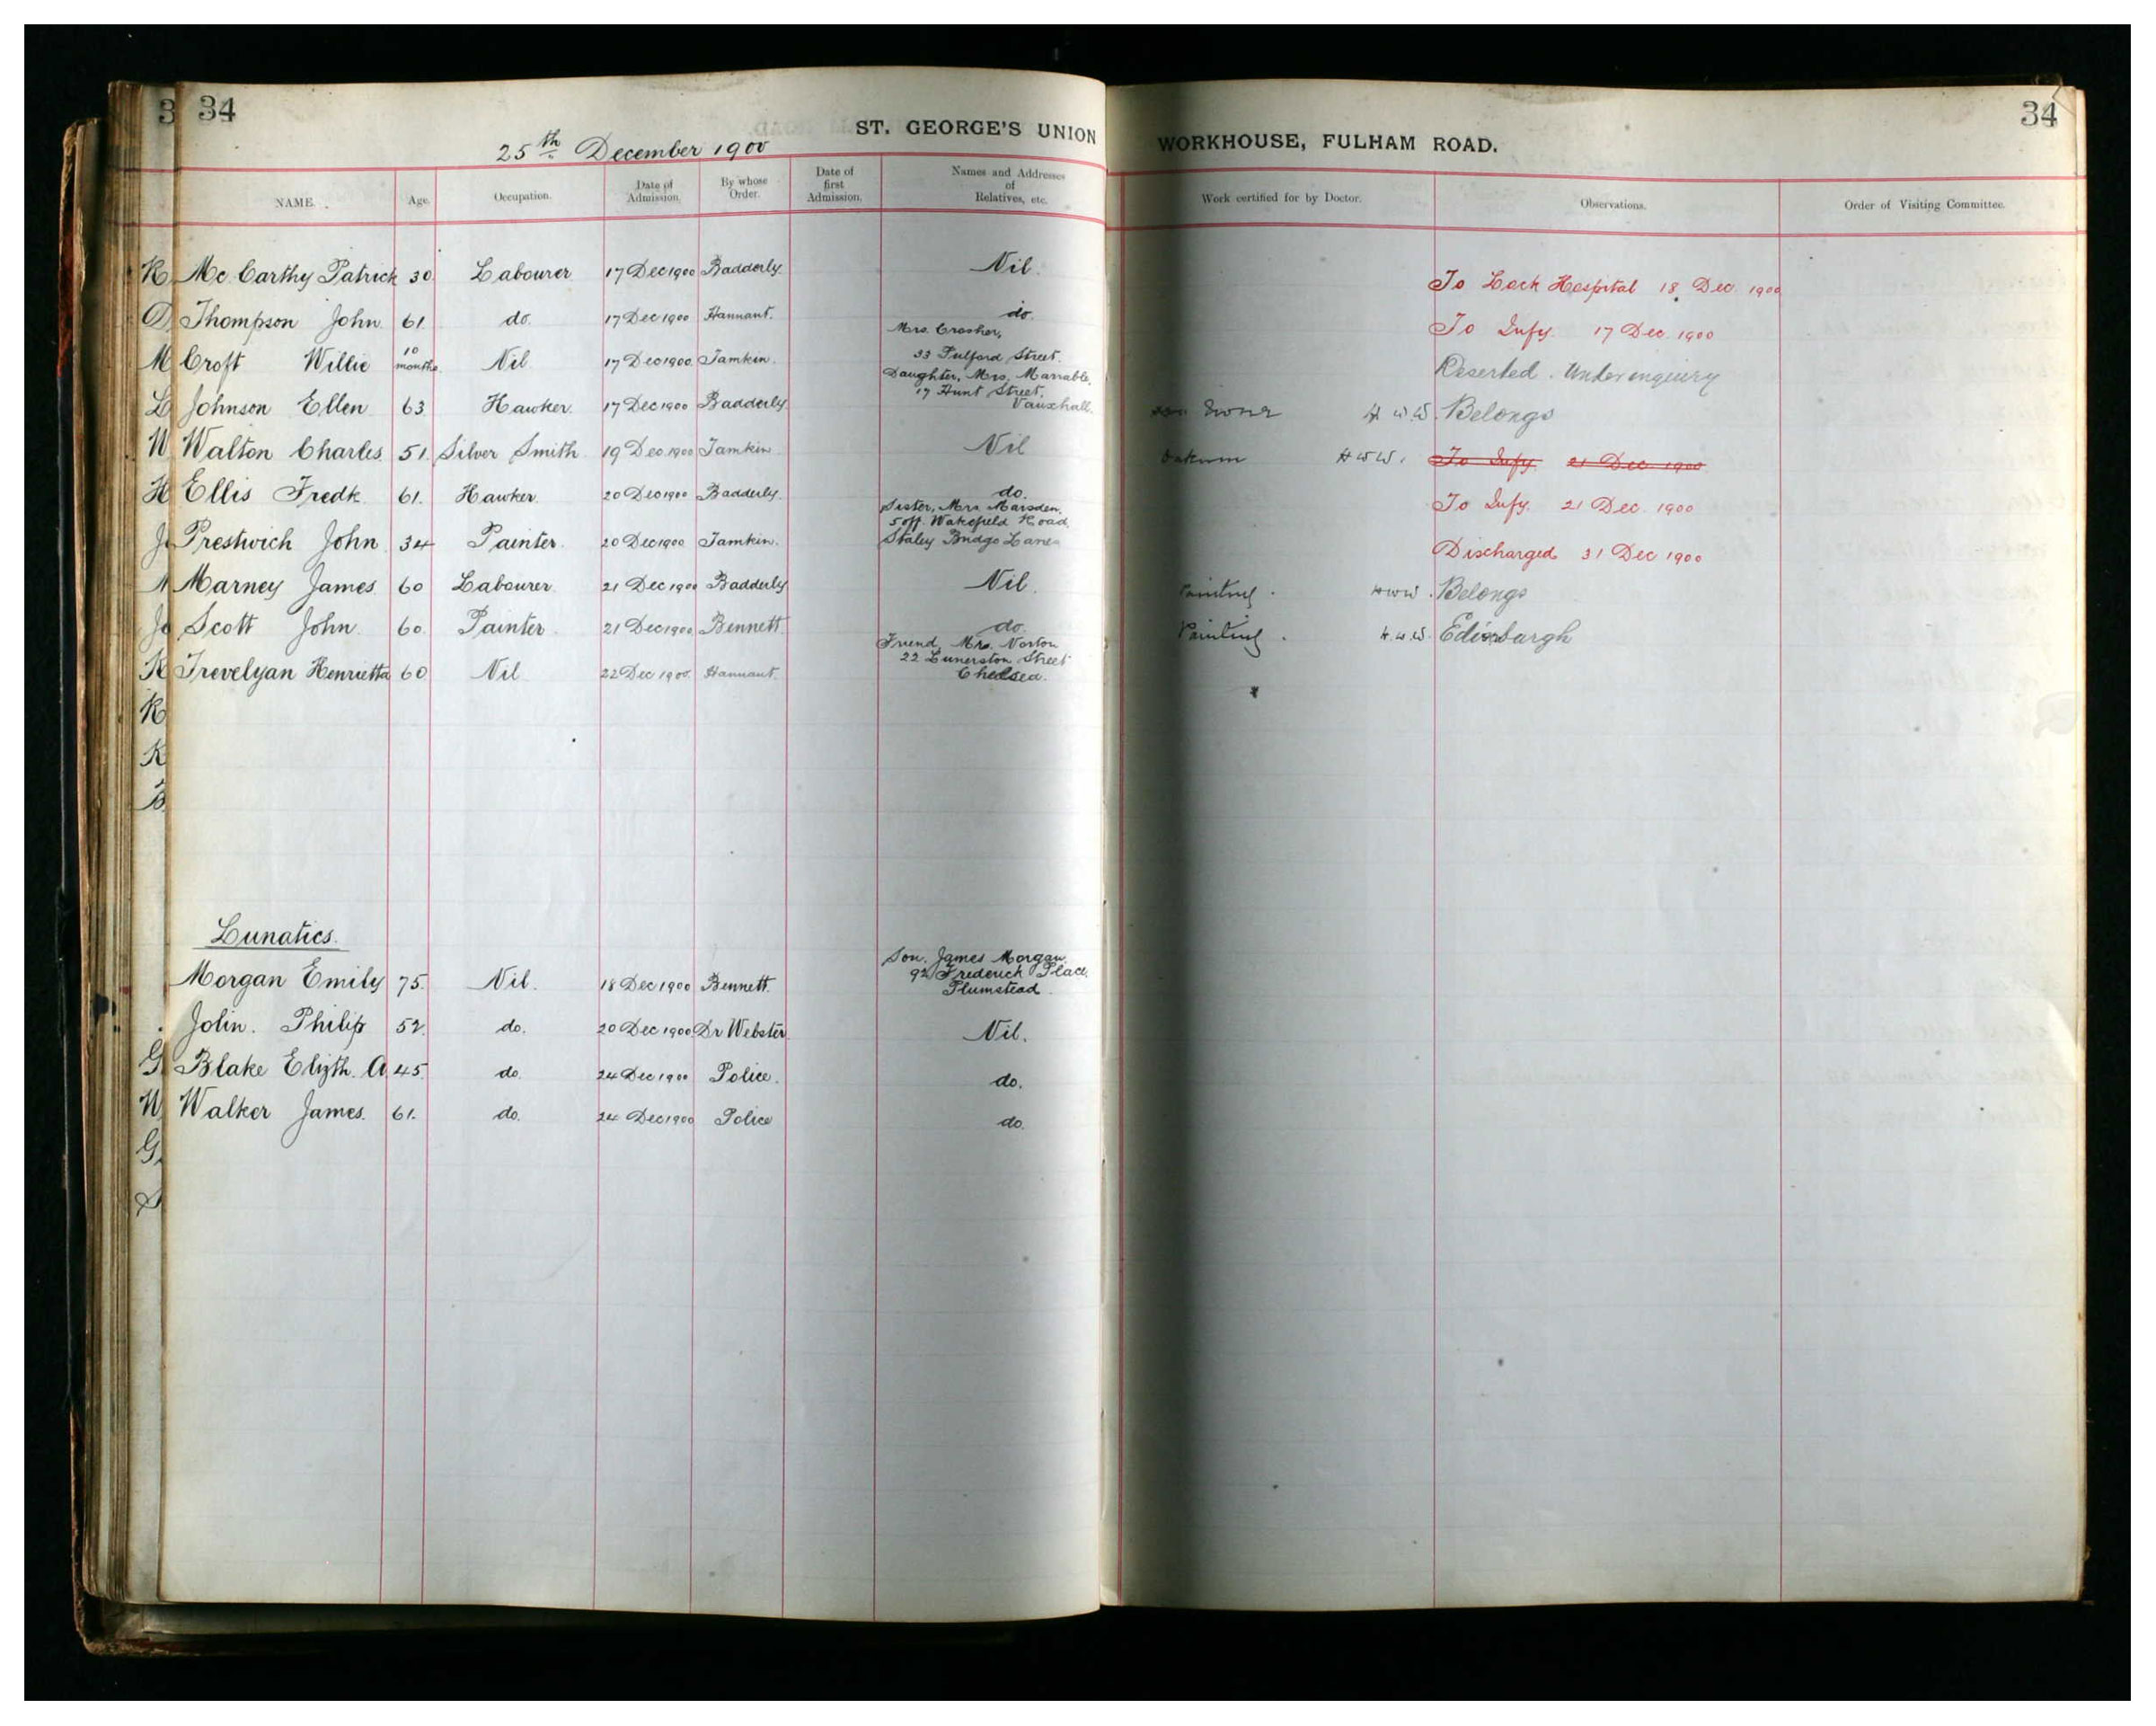 34
25th December 1900
ST. GEORGE'S UNION WORKHOUSE, FULHAM ROAD.
34
NAME. Age. Occupation. Date of Admission. By whose Order. Date of first Admission. Names and Addresses of Relatives, etc. Work certified for by Doctor. Observations. Order of Visiting Committee.
Mc Carthy Patrick 30 Labourer 17 Dec 1900 Badderly. Nil. To Lock Hospital 18 Dec. 1900
Thompson John 61 do. 17 Dec 1900 Hannant. do. To Infy. 17 Dec. 1900
Mrs. Crosher,
Croft Willie 10 months Nil. 17 Dec 1900 Tamkin. 33 Pulford Street. Deserted. Under inquiry
Daughter, Mrs. Marrable,
17 Hunt Street,
Johnson Ellen 63 Hawker. 17 Dec 1900 Badderly. Vauxhall. H W W. Belongs
Walton Charles 51. Silver Smith 19 Dec. 1900 Tamkin Nil Oakum H W W. To Infy. 21 Dec. 1900
Ellis Fredk. 61. Hawker. 20 Dec 1900 Badderly. do. To Infy. 21 Dec 1900
Sister, Mrs. Marsden,
5 off Wakefield Road,
Prestwich John 34 Painter. 20 Dec 1900 Tamkin. Staley Bridge Lane Discharged 31 Dec 1900
Marney James. 60 Labourer 21 Dec 1900 Badderly Nil. Painting. H W W. Belongs
Scott John. 60. Painter 21 Dec 1900 Bennett do. Painting. H. W. W. Edinburgh
Friend, Mrs. Norton
22 Lunerston Street
Trevelyan Henrietta 60 Nil 22 Dec 1900. Hannant Chelsea.
Lunatics.
Son, James Morgan.
92 Frederick Place,
Morgan Emily 75. Nil. 18 Dec 1900 Bennett. Plumstead.
Jolin. Philip 52. do. 20 Dec 1900 Dr Webster. Nil.
Blake Elizth. A 45. do. 24 Dec 1900 Police. do.
Walker James. 61. do. 24 Dec 1900 Police do.